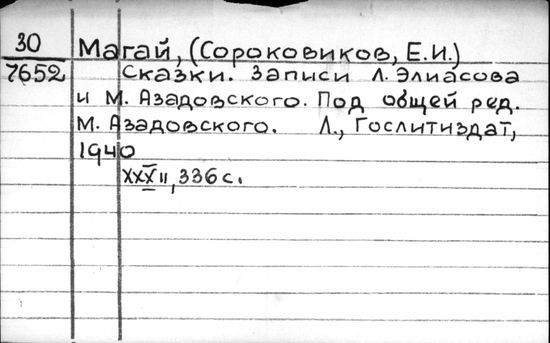 30
7652
Магай, (Сороковиков, Е.И.)
Сказки. Записи Л. Элиасова
и М. Азадовского. Под общей ред.
М. Азадовского. Л., Гослитиздат,
1940
XXXII, 336 с.